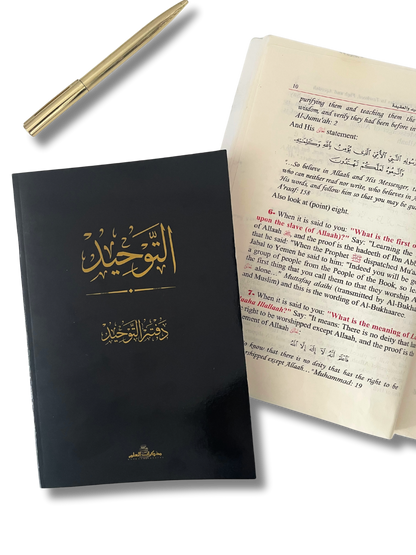 التوحيد
دفتر التوحيد
10
purifying them and teaching them the
wisdom, and verily they had been before in
Al-Jumu'ah: 2
And His statement:
"...So believe in Allaah and His Messenger,
who can neither read nor write, who believes in A
His words, and follow him so that you may be guid
A'raaf: 158
Also look at (point) eight.
6- When it is said to you: "What is the first
upon the slave (of Allaah)?" Say: "Learning the
of Allaah, and the proof is the hadeeth of Ibn Abb
that he said: "When the Prophet dispatched Mu
Jabal to Yemen he said to him: "Indeed you will be g
a group of people from the People of the Book, so le
the first thing that you call them to that they worship
alone..." Muttafaq alaihi (transmitted by Al-Bukh
and Muslim) and this is the wording of Al-Bukhaaree.
7- When it is said to you: "What is the meaning of L
Illallaah?" Say: "It means: There is no deity that
right to be worshipped except Allaah, and the proof is th
ement of Allaah
know that there is no deity that has the right to be
rshipped except Allaah..." Muhammad: 19